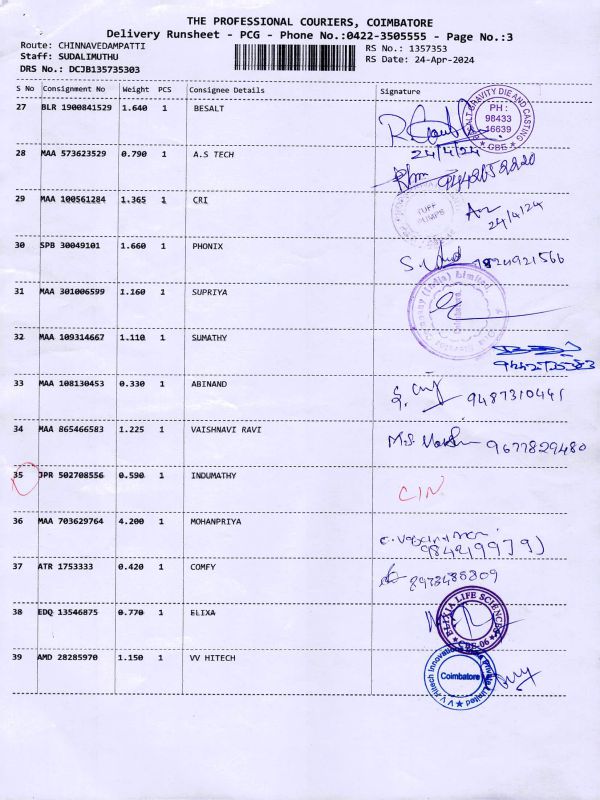 THE PROFESSIONAL COURIERS, COIMBATORE
Delivery Runsheet - PCG - Phone No.:0422-3505555 - Page No.:3
Route: CHINNAVEDAMPATTI RS No.: 1357353
Staff: SUDALIMUTHU RS Date: 24-Apr-2024
DRS No.: DCJB135735303
S No Consignment No Weight PCS Consignee Details Signature
27 BLR 1900841529 1.640 1 BESALT
PH : 98433 16639
CBE
24/4/24
28 MAA 573623529 0.790 1 A.S TECH
29 MAA 100561284 1.365 1 CRI
TUFF PUMPS
24/4/24
30 SPB 30049101 1.660 1 PHONIX
31 MAA 301006599 1.160 1 SUPRIYA
32 MAA 109314667 1.110 1 SUMATHY
33 MAA 108130453 0.330 1 ABINAND
34 MAA 865466583 1.225 1 VAISHNAVI RAVI
9677829480
35 JPR 502708556 0.590 1 INDUMATHY
CIN
36 MAA 703629764 4.200 1 MOHANPRIYA
37 ATR 1753333 0.420 1 COMFY
38 EDQ 13546875 0.770 1 ELIXA
ELIXIA LIFE SCIENCES
CBE-06
39 AMD 28285970 1.150 1 VV HITECH
V V Hitech Innovations India Private Limited
Coimbatore